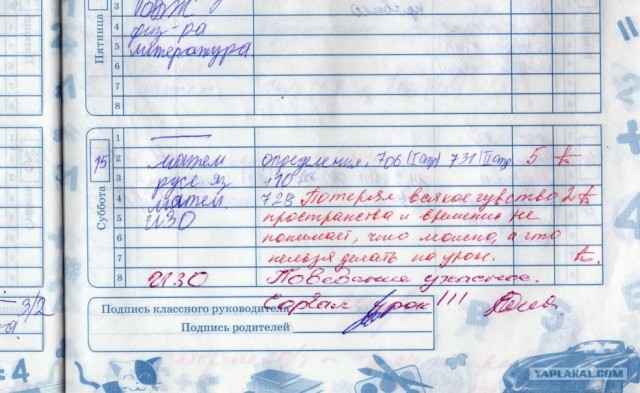 3
4 физ-ра
5 литература
6
7
8
Пятница
1
2 матем определения, 706 (I стр) 731 (II стр) 5
3 русс. яз
4 матем. 728 Потерял всякое чувство 2
5 ИЗО пространства и времени не
6 понимает, что можно, а что
7 нельзя делать на урок.
8 ИЗО Поведение ужасное.
Сорвал урок!!!
15
Суббота
Подпись классного руководителя
Подпись родителей
3/2
= 4
YAPLAKAL.COM